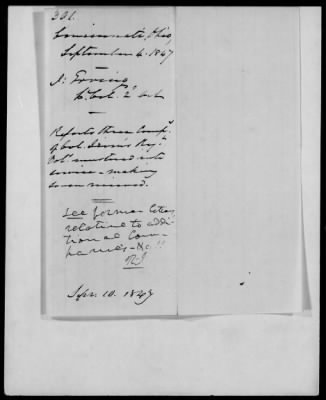 301.
Cincinnati, Ohio,
September 6. 1847
J. Erving
Reports three Comp.
of Col. Irvin's Reg.
mustered into
service - making
seven mustered.
See former letter
relative to addi
tional Com-
panies - &c!!
Sep. 10. 1847